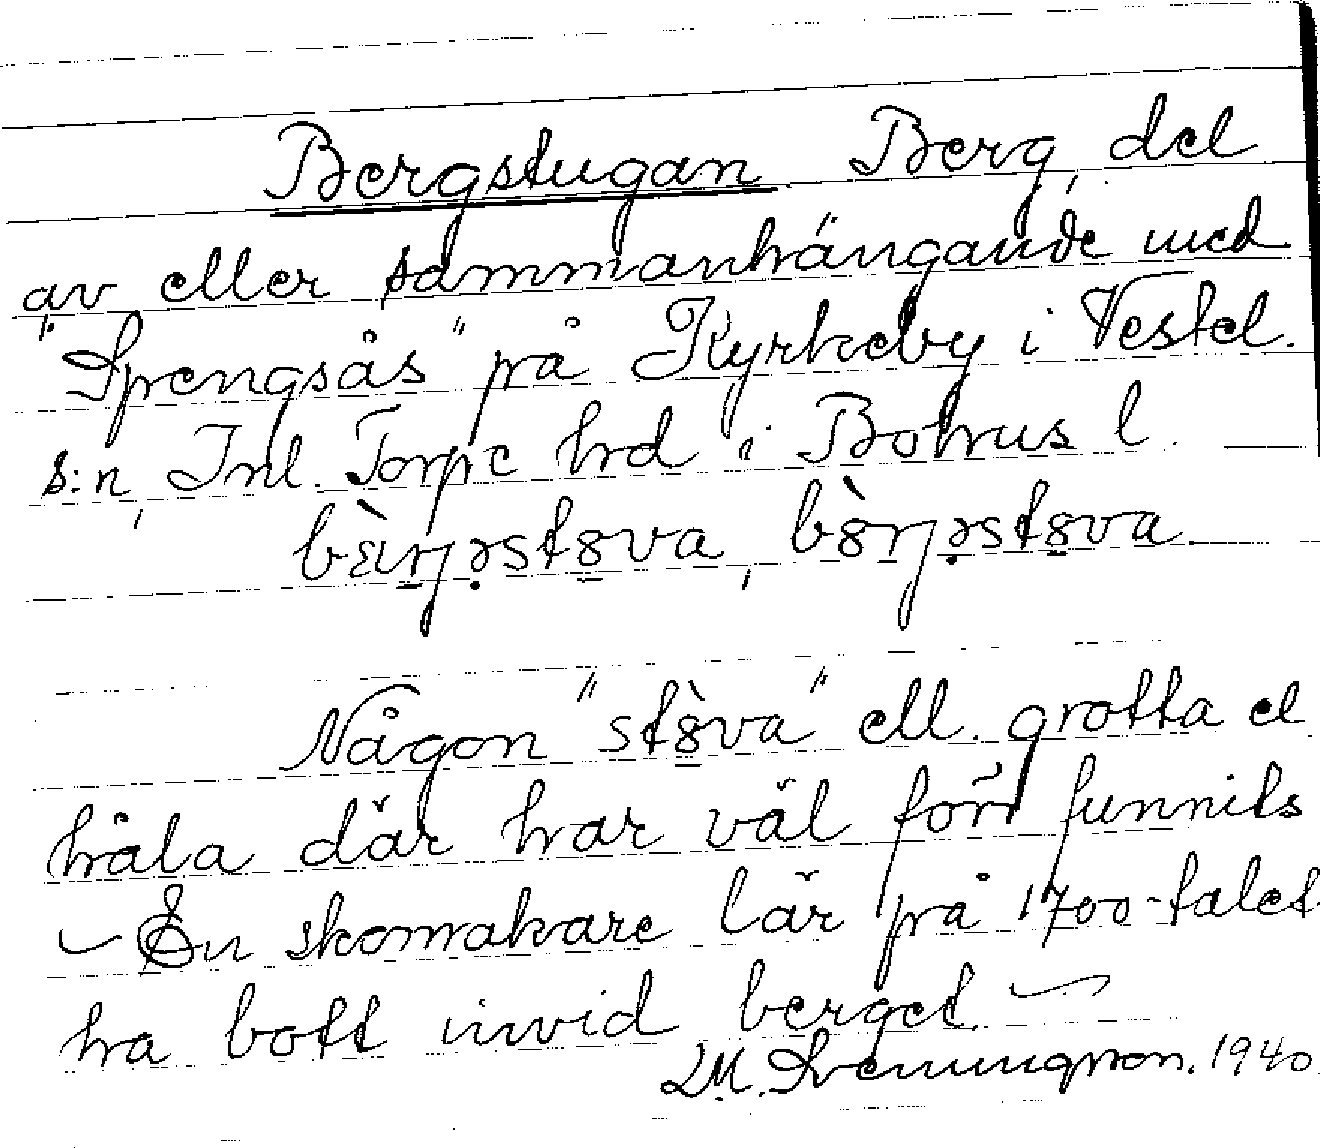 Bergstugan Berg, del
av eller sammanhängande med
"Spengsås" på Kyrkeby i Vesterl.
s:n, Inl. Torpe hrd i Bohus l.
Någon "stöva" ell. grotta el
håla där har väl förr funnits
En skomakare lär på 1700-talet
ha bott invid berget.
1940